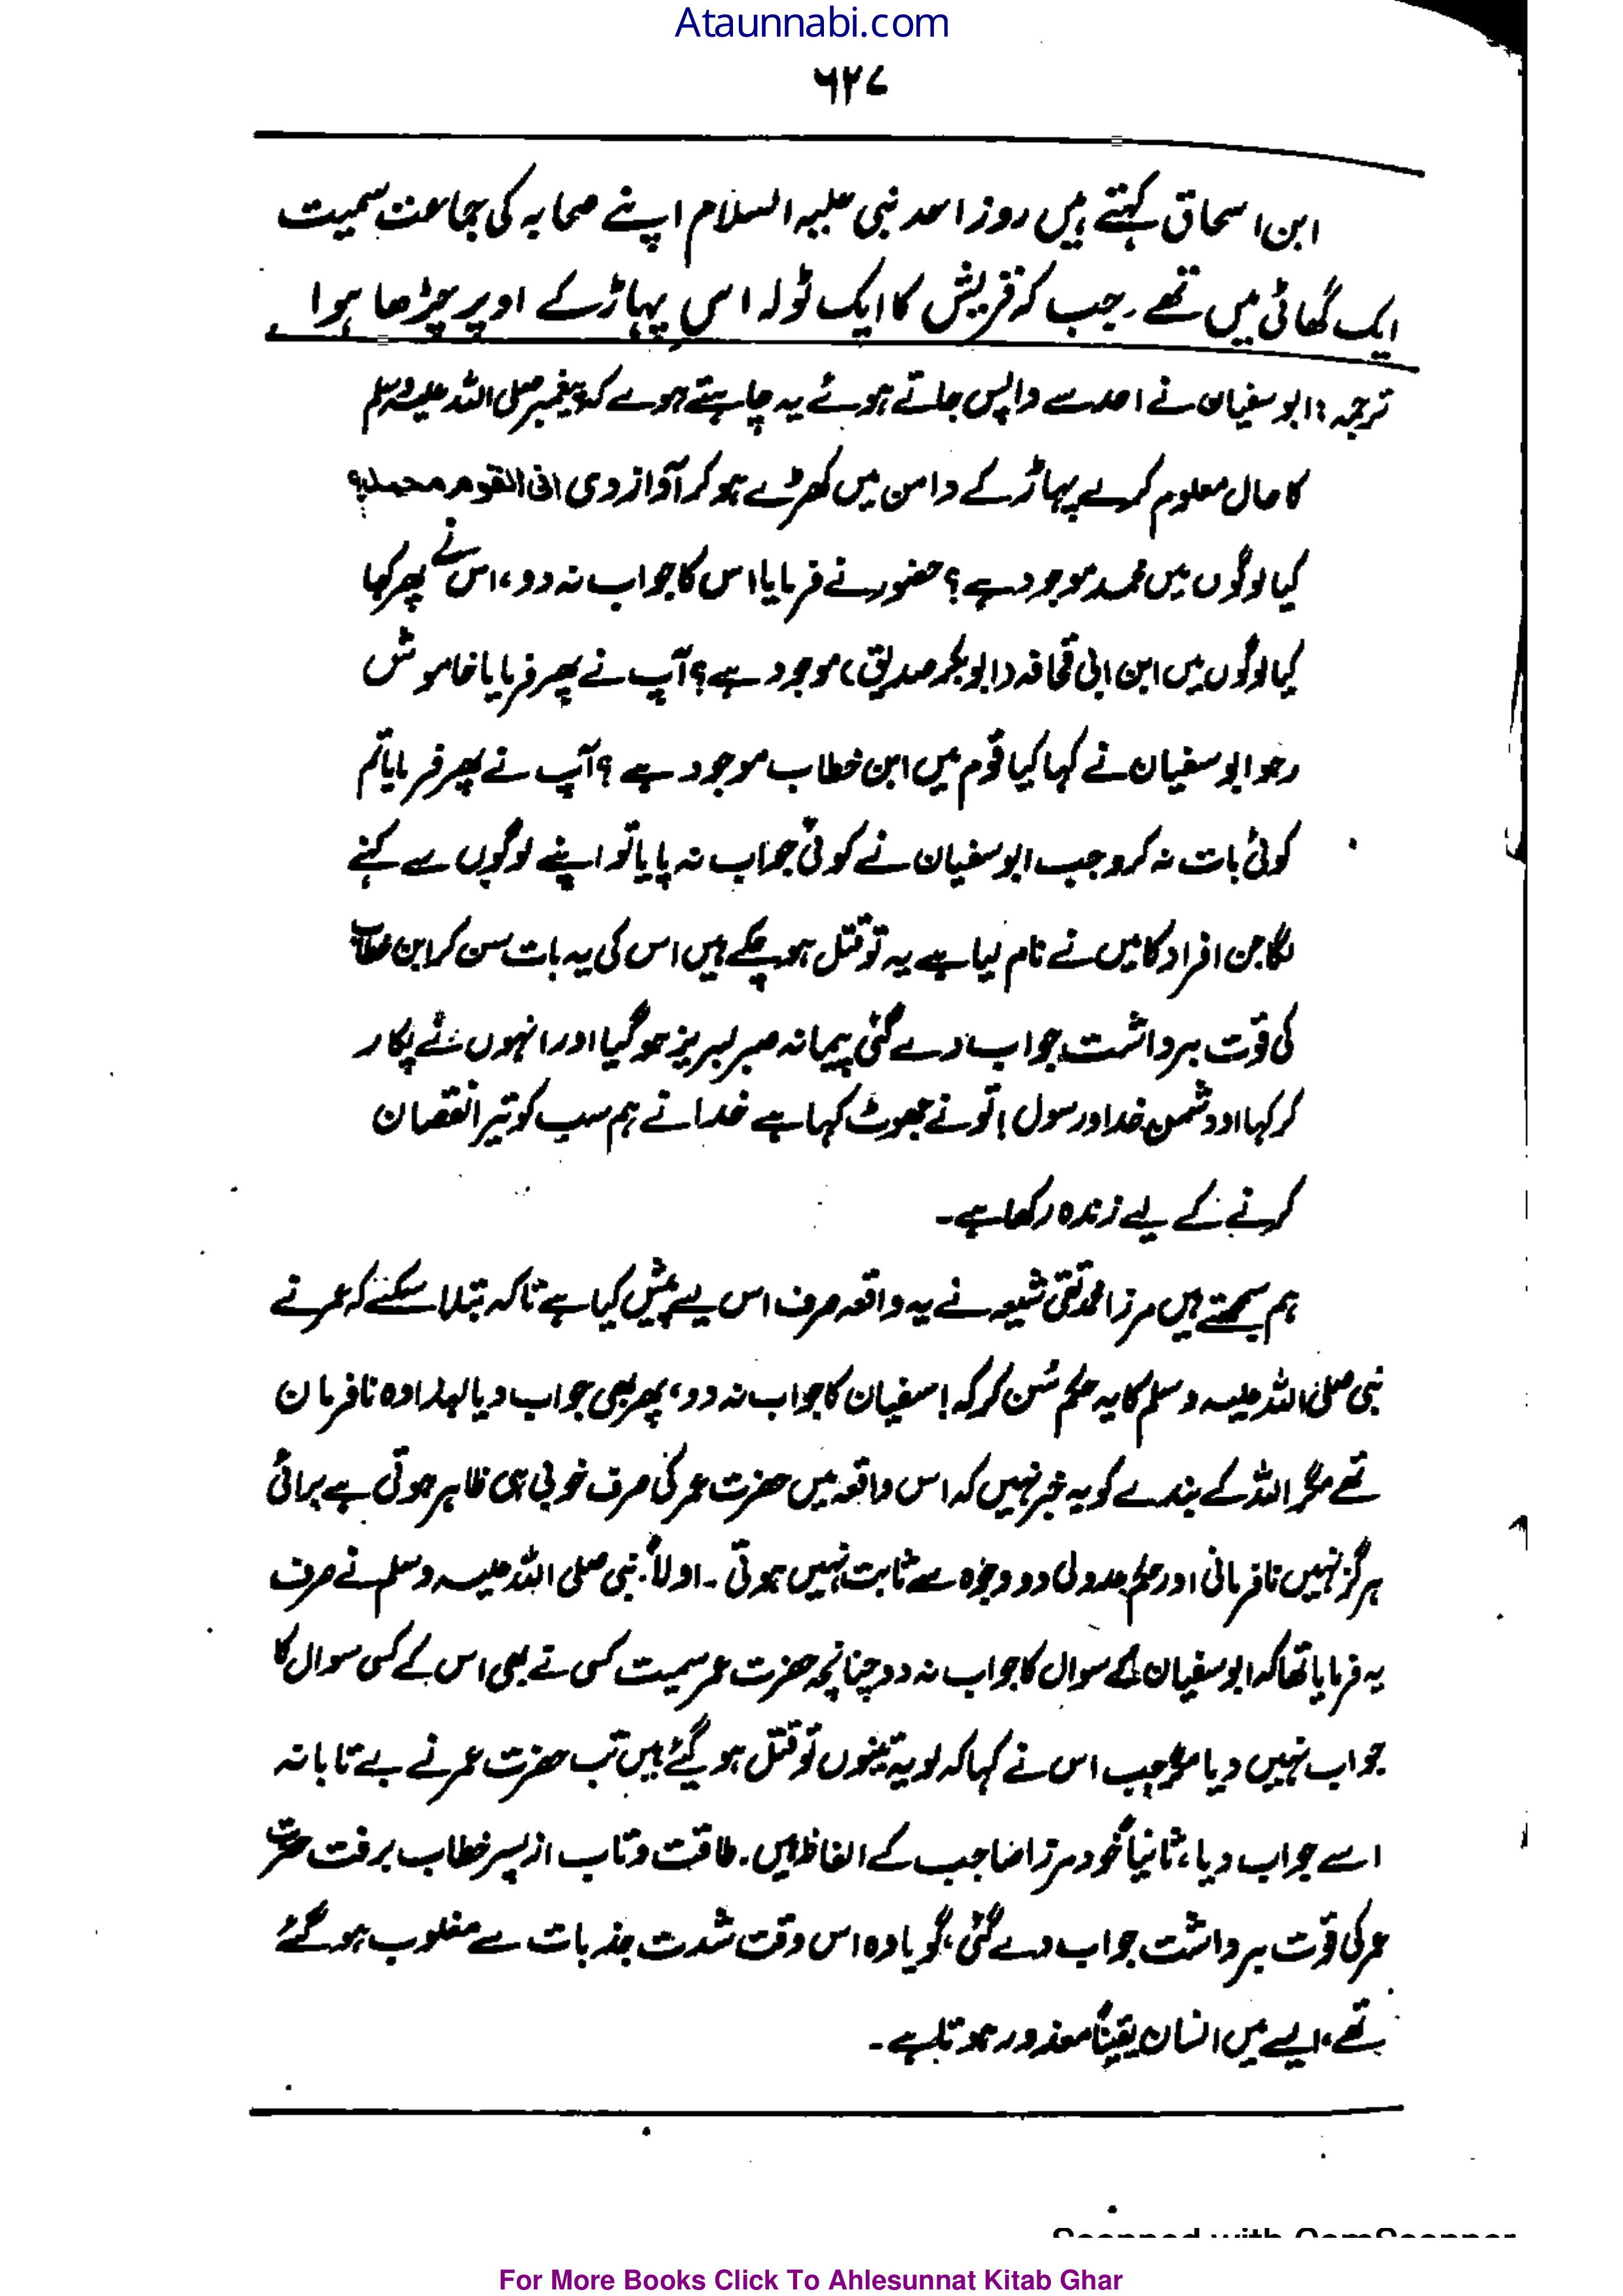 Ataunnabi.com
۶۲۷
ابن اسحاق کہتے ہیں روز احد نبی علیہ السلام اپنے صحابہ کی جماعت سمیت
ایک گھاٹی میں تھے۔ جب کہ قریش کا ایک ٹولہ اس پہاڑ کے اوپر چڑھا ہوا
ترجمہ: ابو سفیان نے احد سے واپس جاتے ہوئے یہ چاہتے ہوے کہ پیغمبر صلی اللہ علیہ وسلم
کا حال معلوم کرے پہاڑ کے دامن میں کھڑے ہو کر آواز دی افی القوم محمد؟
کیا لوگوں میں محمد موجود ہے؟ حضور نے فرمایا اس کا جواب نہ دو، اس نے پھر کہا
کیا لوگوں میں ابن ابی قحافہ (ابو بکر صدیق) موجود ہے؟ آپ نے پھر فرمایا خاموش
رہو ابو سفیان نے کہا کیا قوم میں ابن خطاب موجود ہے؟ آپ نے پھر فرمایا تم
کوئی بات نہ کرو جب ابو سفیان نے کوئی جواب نہ پایا تو اپنے لوگوں سے کہنے
لگا جن افراد کا میں نے نام لیا ہے یہ تو قتل ہو چکے ہیں اس کی یہ بات سن کر ابن خطاب
کی قوت برداشت جواب دے گئی پیمانہ صبر لبریز ہو گیا اور انہوں نے پکار
کر کہا او دشمن خدا و رسول! تو نے جھوٹ کہا ہے خدا نے ہم سب کو تیرا نقصان
کرنے کے لیے زندہ رکھا ہے۔
ہم سمجھتے ہیں مرزا محمد تقی شیعہ نے یہ واقعہ صرف اس لیے پیش کیا ہے تاکہ بتلا سکے کہ عمر نے
نبی صلی اللہ علیہ وسلم کا یہ حکم سُن کر کہ! سفیان کا جواب نہ دو، پھر بھی جواب دیا لہذا وہ نافرمان
تھے مگر اللہ کے بندے کو یہ خبر نہیں کہ اس واقعہ میں حضرت عمر کی صرف خوبی ہی ظاہر ہوتی ہے برائی
ہرگز نہیں نافرمانی اور حکم عدولی دو وجوہ سے ثابت نہیں ہوتی۔ اولاً: نبی صلی اللہ علیہ وسلم نے صرف
یہ فرمایا تھا کہ ابو سفیان کے سوال کا جواب نہ دو چنانچہ حضرت عمر سمیت کسی نے بھی اس کے کسی سوال کا
جواب نہیں دیا مگر جب اس نے کہا کہ لو یہ تینوں تو قتل ہو گئے ہیں تب حضرت عمر نے بے تابانہ
اسے جواب دیا، ثانیاً خود مرزا صاحب کے الفاظ ہیں۔ طاقت و تاب از پسر خطاب برفت حضرت
عمر کی قوت برداشت جواب دے گئی، گویا وہ اس وقت شدت جذبات سے مغلوب ہو گئے
تھے، ایسے میں انسان یقیناً معذور ہوتا ہے۔
Scanned with CamScanner
For More Books Click To Ahlesunnat Kitab Ghar